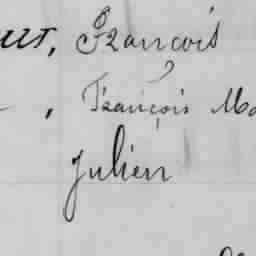 , François
, François
Julien